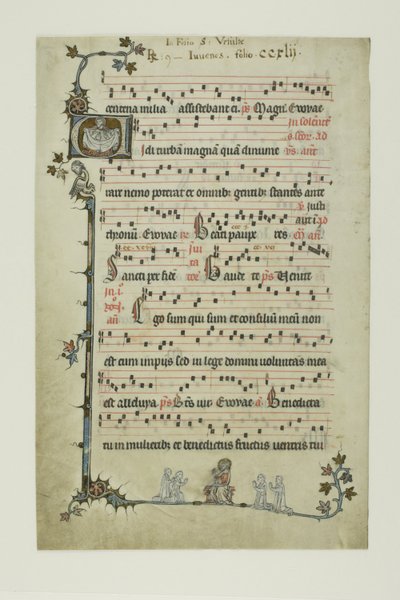 In Festo S. Ursulae
℟: 9 — Iuuenes . folio . ccxlij .
centena milia assistebant ei. ps Magn. Evovae
In solenit
s. scor. ad
Vidi turbam magnam quam dinume vs. ant
rare nemo poterat ex omnib: gentib: stantes ante
thronum. Evovae Beati paupe res
Sancti per fidē Gaude te ps Venite
Ego sum qui sum et consilium meū non
est cum impiis sed in lege domini voluntas mea
est alleluya. ps Evovae a. Benedicta
tu in mulierib: et benedictus fructus ventris tui